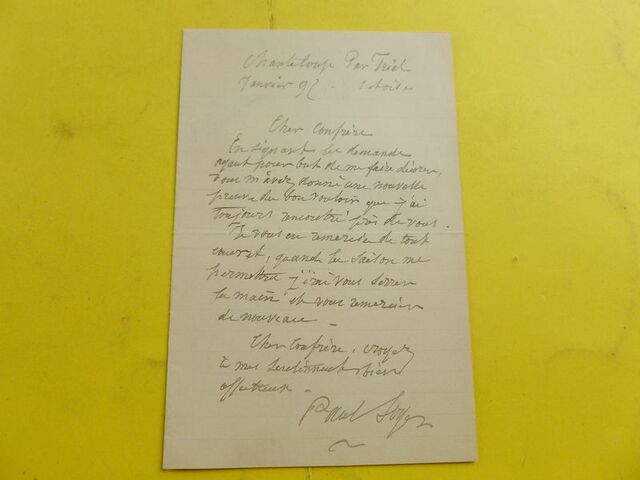 Chanteloup Par Triel
Janvier 92.
Cher Confrère
En signant la demande
ayant pour but de me faire décorer,
vous m'avez donné une nouvelle
preuve du bon vouloir que j'ai
toujours rencontré près de vous.
Je vous en remercie de tout
coeur et, quand la saison me
permettra j'irai vous serrer
la main et vous remercier
de nouveau -
Cher Confrère, croyez
à mes sentiments bien
affectueux -
Paul Soyer